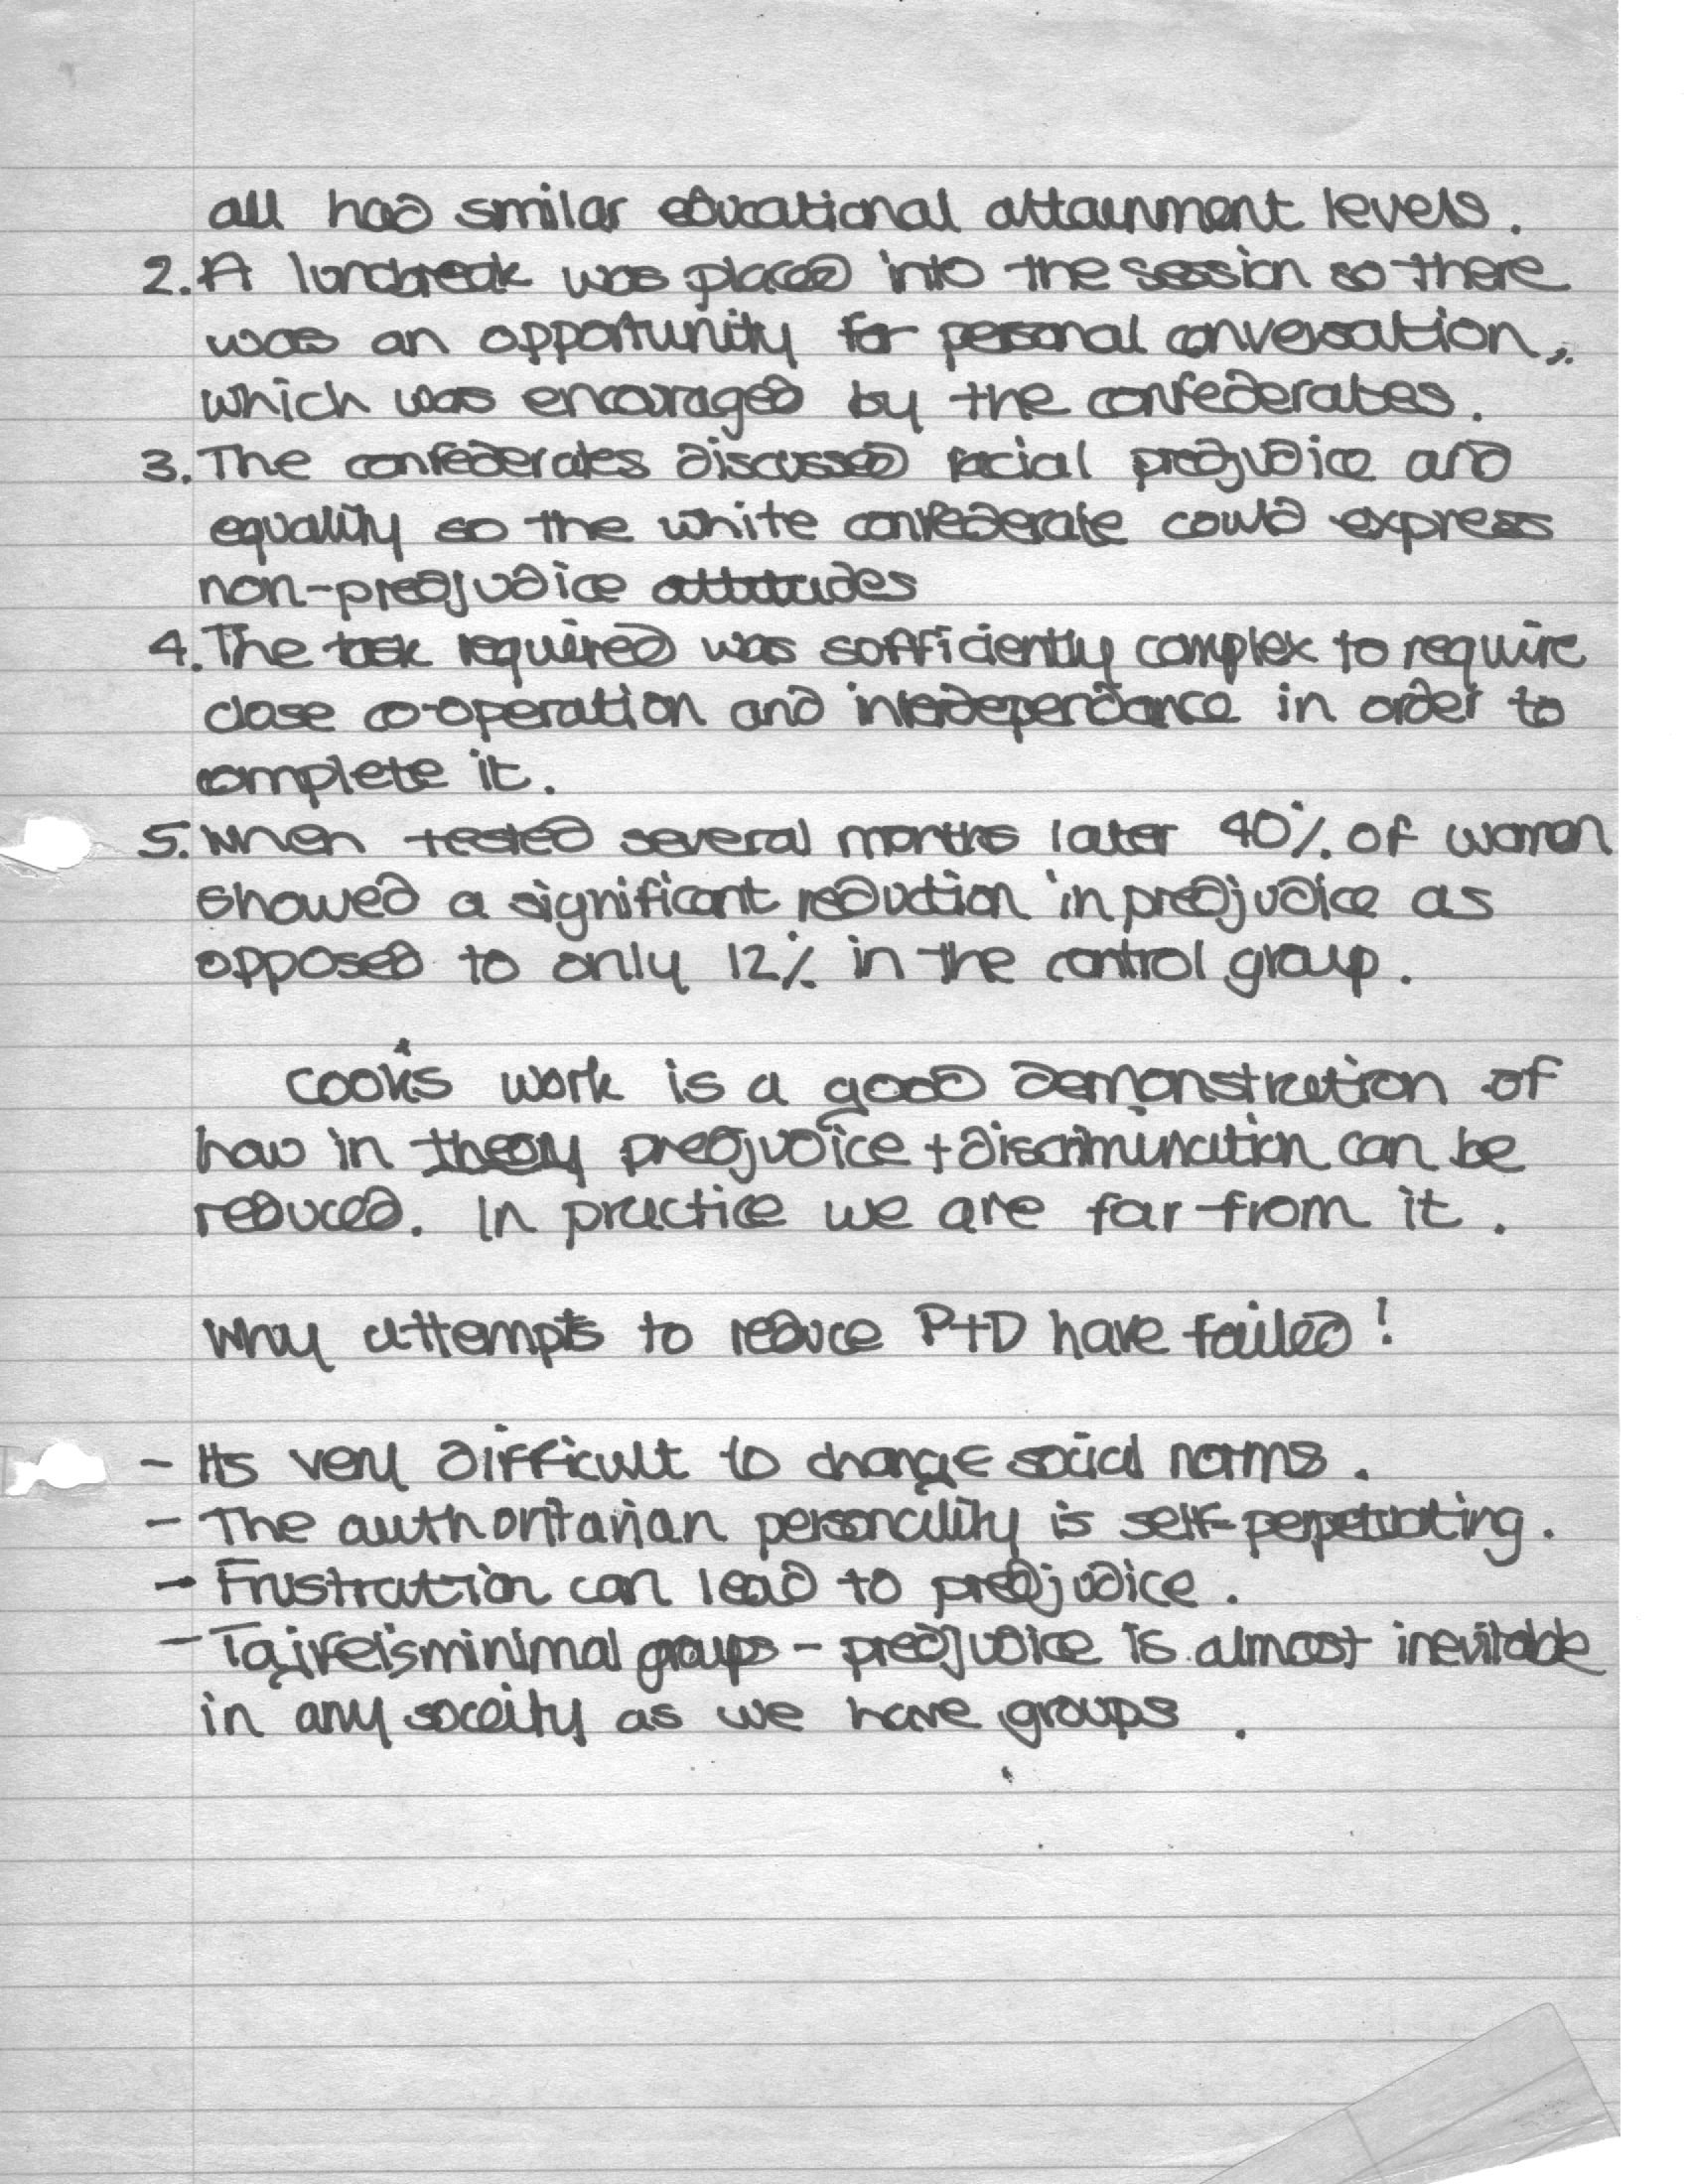 all had similar educational attainment levels.
2. A lunchbreak was placed into the session so there
was an opportunity for personal conversation,
which was encouraged by the confederates.
3. The confederates discussed racial predjudice and
equality so the white confederate could express
non-predjudice attitudes
4. The task required was sufficiently complex to require
close co-operation and interdependance in order to
complete it.
5. When tested several months later 40% of women
showed a significant reduction in predjudice as
opposed to only 12% in the control group.
Cook's work is a good demonstration of
how in theory predjudice + discrimination can be
reduced. In practice we are far from it.
Why attempts to reduce P+D have failed!
- Its very difficult to change social norms.
- The authoritarian personality is self-perpetuating.
- Frustration can lead to predjudice.
- Tajfel's minimal groups - predjudice is almost inevitable
in any soceity as we have groups.